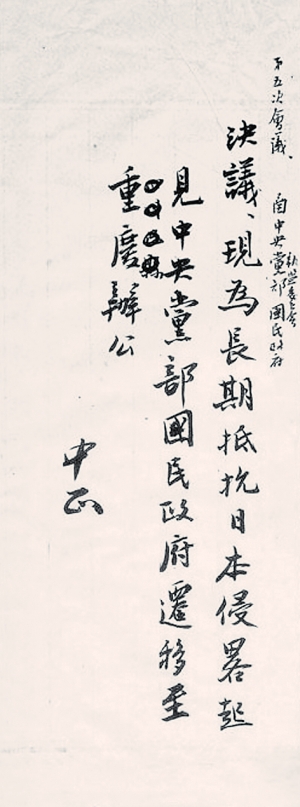 第五次會議
國中央黨部國民政府
決議、現為長期抵抗日本侵畧起
見中央黨部國民政府遷移至
重慶辦公
中正